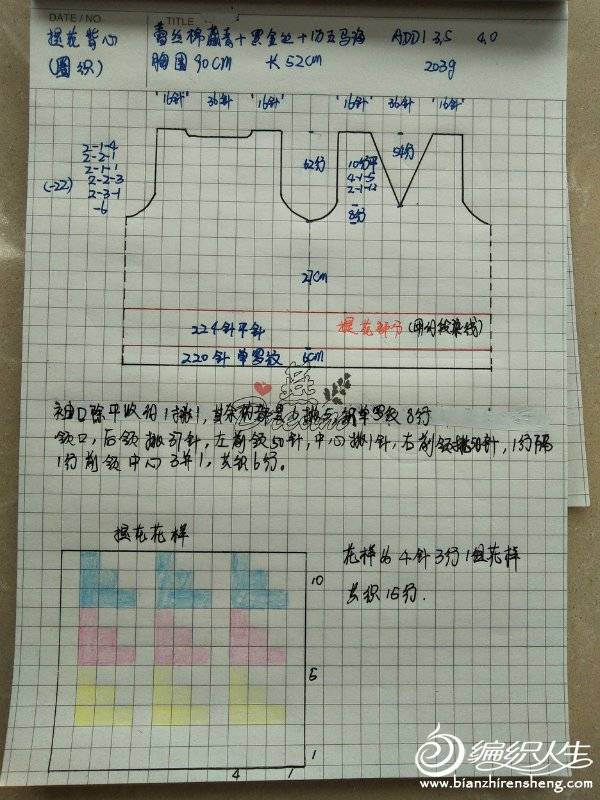 DATE / NO.
TITLE
提花背心
蕾丝棉藏青+黑金丝+功五马海
ADDI 3.5 4.0
(圈织)
胸围90cm 长52cm
203g
16针 36针 16针 16针 36针 16针
2-1-4
2-2-1
2-1-1
2-2-3
2-3-1
-6
(-22)
62行
10行平
4-1-5
2-1-12
8行
54行
27cm
224针平针
提花部分(用的段染线)
220针单罗纹 6cm
燕
袖口除平收的1挑1,其余
织单罗纹8行
领口,后领挑37针,左前领50针,中心挑1针,右前领挑50针,1行隔
1行前领中心3并1,共织6行。
提花花样
10
5
1
4 1
花样为4针3行1组花样
共织15行.
编织人生
www.bianzhirensheng.com